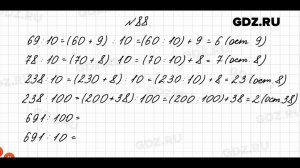 GDZ.RU
№88
69 : 10 = (60 + 9) : 10 = (60 : 10) + 9 = 6 (ост. 9)
78 : 10 = (70 + 8) : 10 = (70 : 10) + 8 = 7 (ост. 8)
238 : 10 = (230 + 8) : 10 = (230 : 10) + 8 = 23 (ост. 8)
238 : 100 = (200 + 38) : 100 = (200 : 100) + 38 = 2 (ост. 38)
691 : 100 =
691 : 10 =